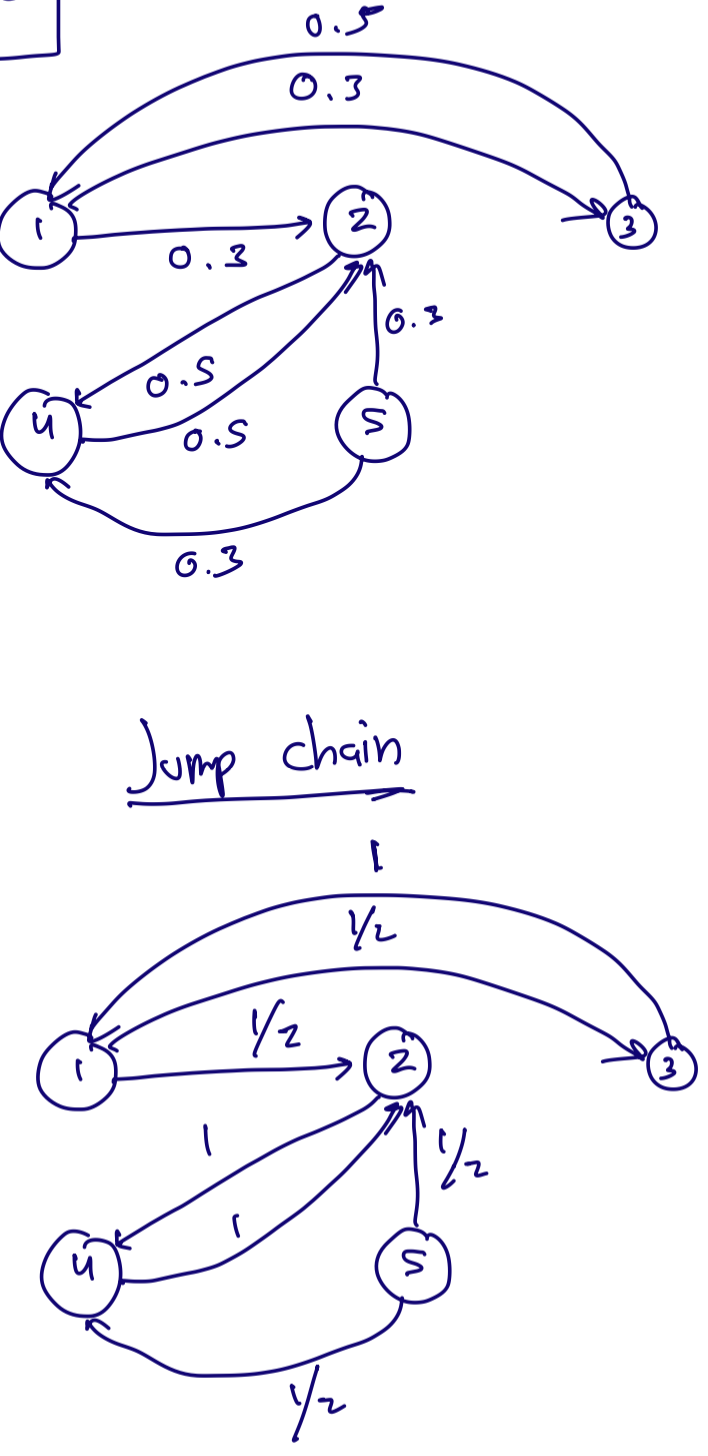 0.5
0.3
1
2
3
0.3
0.3
0.5
4
5
0.5
0.3
Jump chain
1
1/2
1/2
1
2
3
1
1/2
1
4
5
1/2